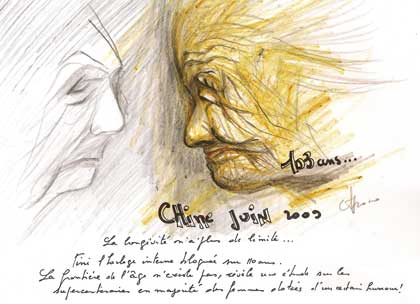 103 ans...
Chine Juin 2009
La longévité n'a plus de limite...
Fini l'horloge interne bloquée sur 110 ans.
La frontière de l'âge n'existe pas, révèle une étude sur les
supercentenaires en majorité des femmes dotées d'un certain humour!